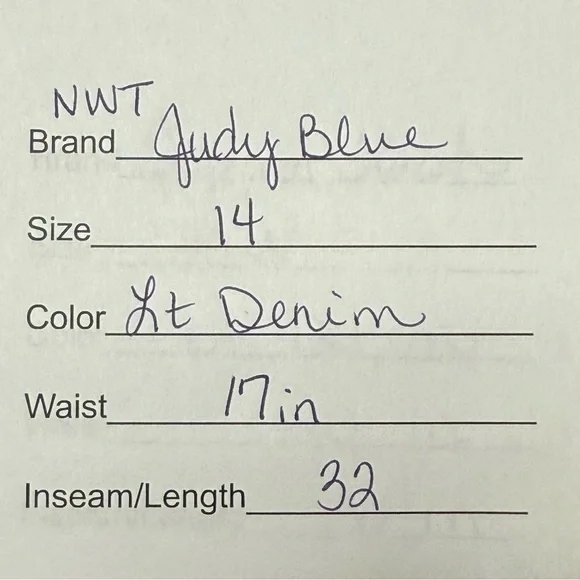 NWT
Brand Judy Blue
Size 14
Color Lt Denim
Waist 17in
Inseam/Length 32